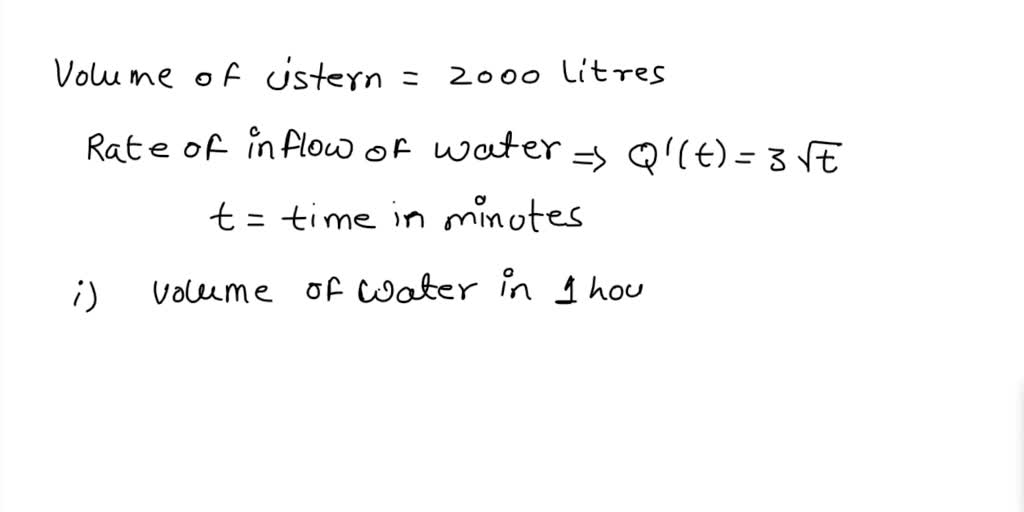 Volume of cistern = 2000 litres
Rate of inflow of water => Q'(t) = 3√t
t = time in minutes
i) volume of water in 1 hou